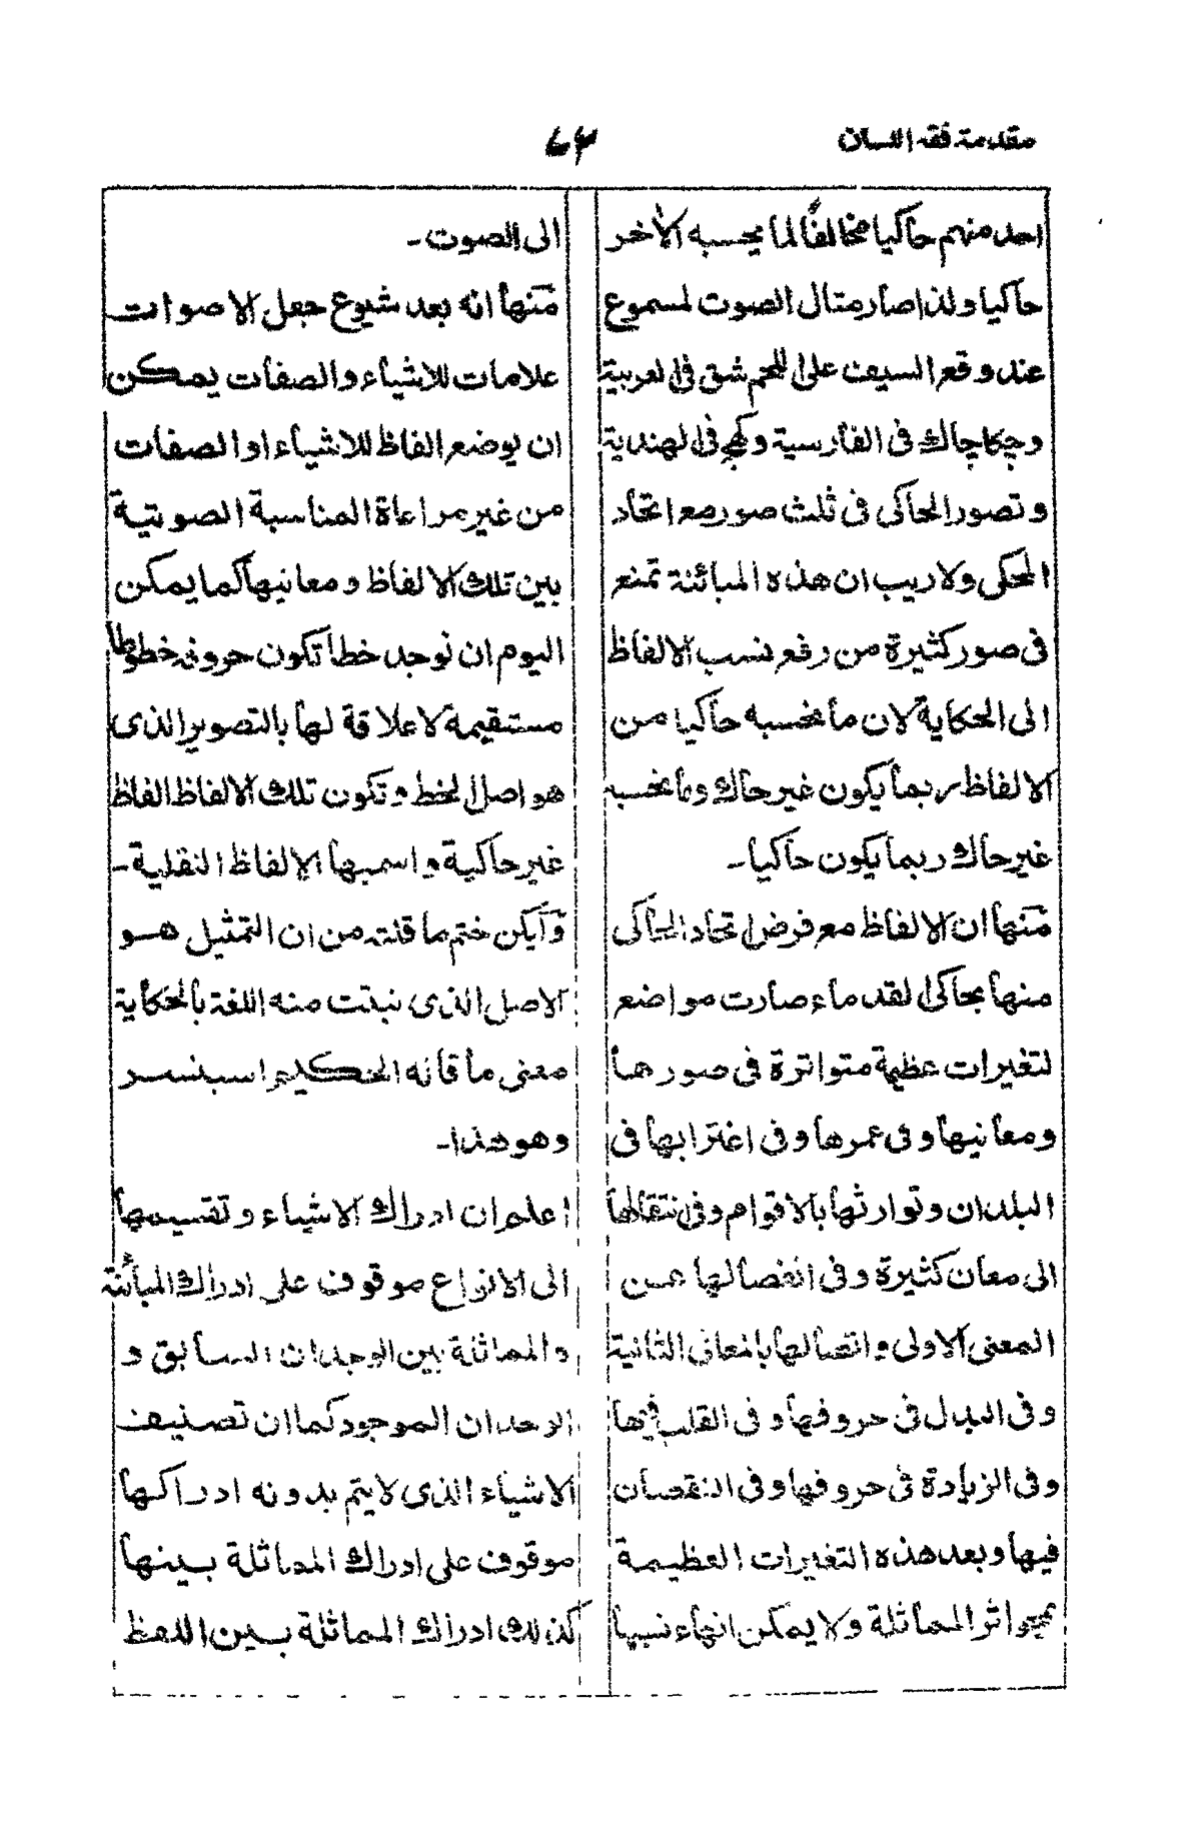 مقدمة فقه اللسان
٦٣
احد منهم حاكيا مخالفًا لما يحسبه الآخر
حاكيا ولذا صار مثال الصوت لمسموع
عند وقع السيف على اللحم شق فى العربية
وچكاچاك فى الفارسية و فى الهندية
وتصور الحاكى فى ثلث صور مع اتحاد
المحكى ولا ريب ان هذه المبائنة تمنع
فى صور كثيرة من رفع نسب الالفاظ
الى الحكاية لان ما نحسبه حاكيا من
الالفاظ ربما يكون غير حاك وما نحسبه
غير حاك ربما يكون حاكيا۔
منها ان الالفاظ مع فرض اتحاد الحاكى
منها بحاكى لقدماء صارت مواضع
لتغيرات عظيمة متواترة فى صورها
ومعانيها وفى عمرها وفى اغترابها فى
البلدان وتوارثها بالاقوام وفى انتقالها
الى معان كثيرة وفى انفصالها عن
المعنى الاولى واتصالها بالمعانى الثانية
وفى البدل فى حروفها وفى القلب فيها
وفى الزيادة فى حروفها وفى النقصان
فيها وبعد هذه التغيرات العظيمة
تمحو اثر المماثلة ولا يمكن انهاء نسبها
الى الصوت۔
منها انه بعد شيوع جعل الاصوات
علامات للاشياء والصفات يمكن
ان يوضع الفاظ للاشياء او الصفات
من غير مراعاة المناسبة الصوتية
بين تلك الالفاظ ومعانيها كما يمكن
اليوم ان نوجد خطا تكون حروفه خطوطا
مستقيمة لا علاقة لها بالتصوير الذى
هو اصل الخط وتكون تلك الالفاظ الفاظا
غير حاكية واسميها الالفاظ النقلية۔
وآيكن ختم ما قلته من ان التمثيل هو
الاصل الذى نبتت منه اللغة بالحكاية
معنى ما قاله الحكيم اسبنسر
وهو هذا۔
اعلم ان ادراك الاشياء وتقسيمها
الى الانواع موقوف على ادراك المبائنة
والمماثلة بين الوجدان السابق و
الوحدان الموجود كما ان تصنيف
الاشياء الذى لايتم بدونه ادراكها
موقوف على ادراك المماثلة بينها
كذلك ادراك المماثلة بين اللفظ